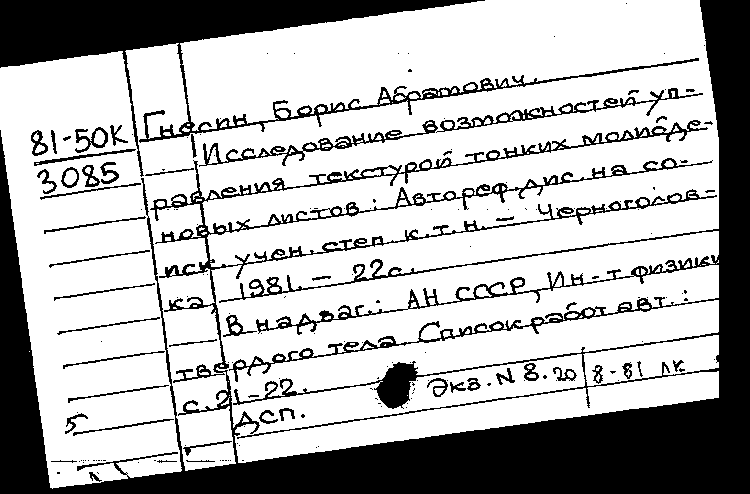 81-50К
3085
Гнесин, Борис Абрамович.
Исследование возможностей уп-
равления текстурой тонких молибде-
новых листов: Автореф. дис. на со-
иск. учен. степ к.т.н. – Черноголов-
ка, 1981. – 22с.
В надзаг.: АН СССР, Ин-т физики
твердого тела. Список работ авт.:
с. 21-22.
ДСП.
Экз. N 8.20
8-81 ЛК
5